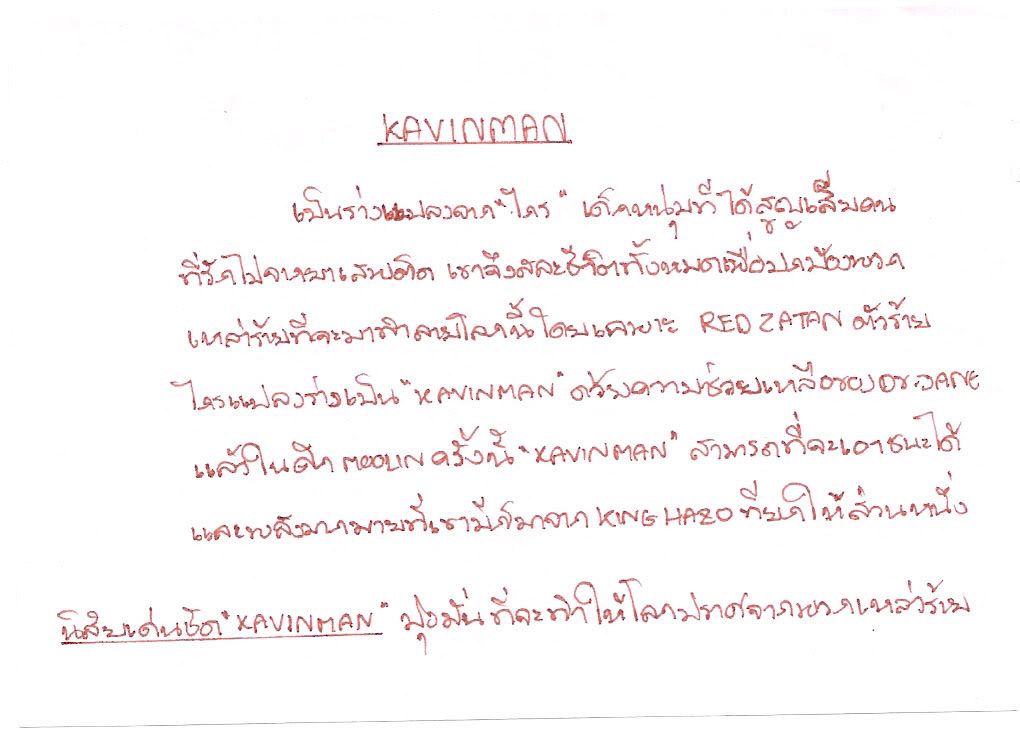 KAVINMAN
เป็นร่างแปลงจาก "ไกร" เด็กหนุ่มที่ได้สูญเสียคน
ที่รักไปจากยาเสพติด เขาจึงสละชีวิตทั้งหมดเพื่อปกป้องพวก
เหล่าร้ายที่จะมาทำลายโลกนี้โดยเฉพาะ RED ZATAN ตัวร้าย
ไกรแปลงร่างเป็น "KAVINMAN" ด้วยความช่วยเหลือของ JANE
แล้วในศึก MOOUN ครั้งนี้ "KAVINMAN" สามารถที่จะเอาชนะได้
และพลังมากมายที่เขามีก็มาจาก KING HAZO ที่ยกให้ส่วนหนึ่ง
นิสัยเด่นชัด "KAVINMAN" มุ่งมั่นที่จะทำให้โลกปราศจากพวกเหล่าร้าย